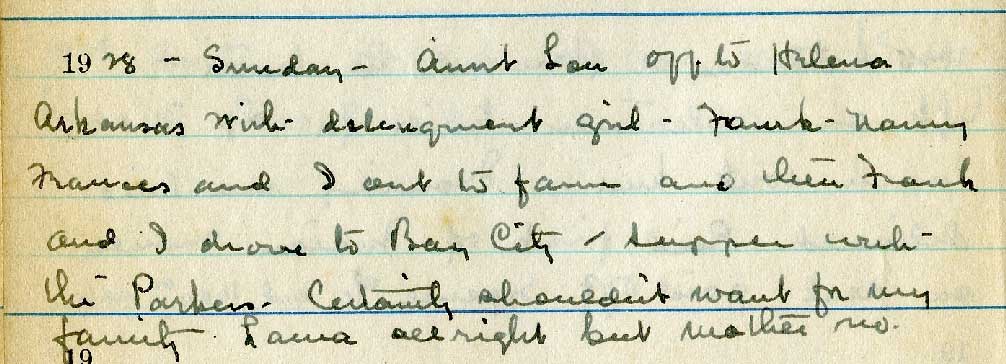 1928 - Sunday - Aunt Lou off to Helena
Arkansas with delinquent girl - Frank - Nanny
Frances and I out to farm and then Frank
and I drove to Bay City / supper with
the Parkers - Certainly shouldn't want for my
family. Lama all right but mother no.
19